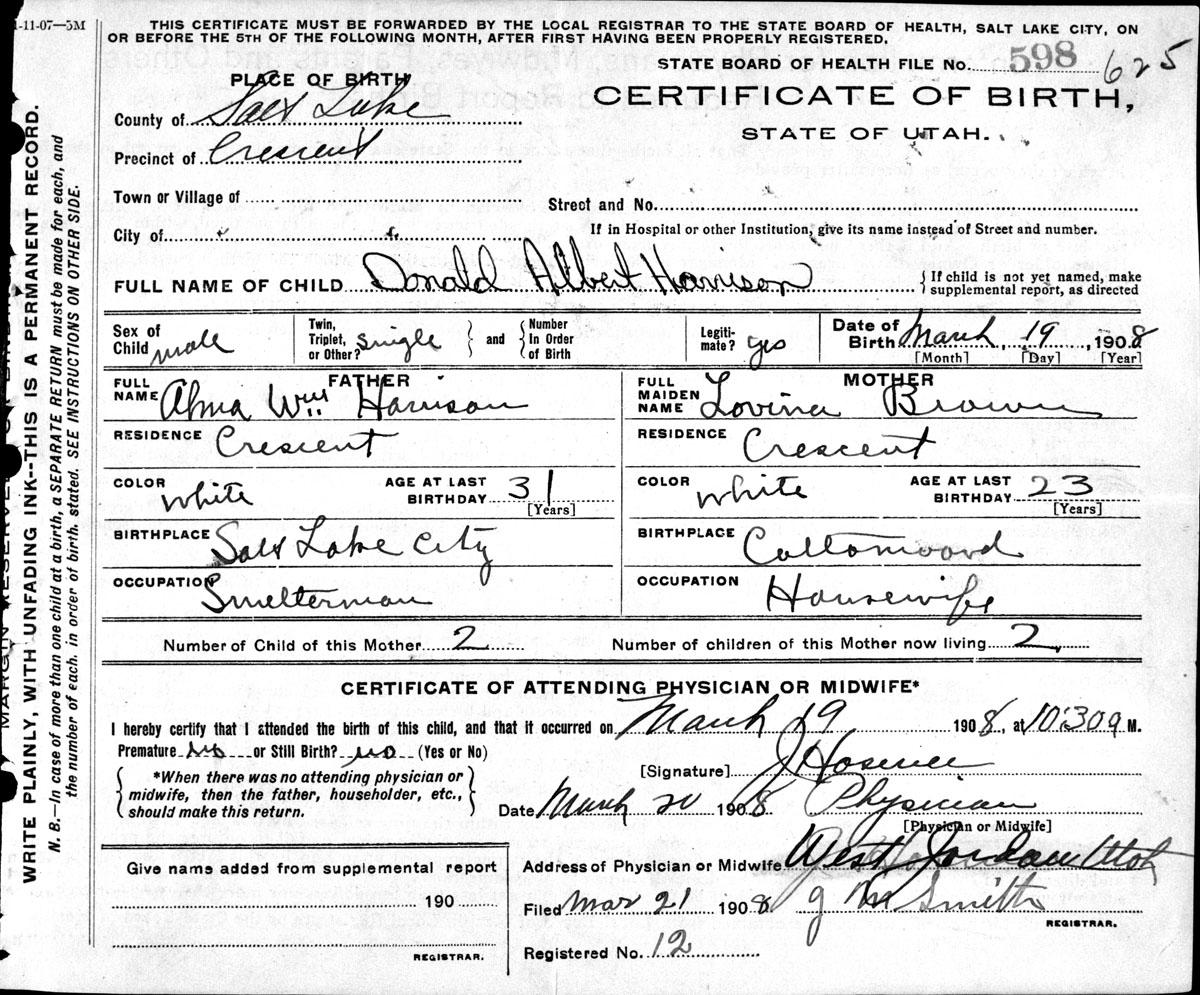 1-11-07—5M
THIS CERTIFICATE MUST BE FORWARDED BY THE LOCAL REGISTRAR TO THE STATE BOARD OF HEALTH, SALT LAKE CITY, ON
OR BEFORE THE 5TH OF THE FOLLOWING MONTH, AFTER FIRST HAVING BEEN PROPERLY REGISTERED.
STATE BOARD OF HEALTH FILE No. 598 625
PLACE OF BIRTH
CERTIFICATE OF BIRTH,
STATE OF UTAH.
County of Salt Lake
Precinct of Crescent
Town or Village of
Street and No.
City of
If in Hospital or other Institution, give its name instead of Street and number.
FULL NAME OF CHILD Donald Albert Harrison { If child is not yet named, make
supplemental report, as directed
Sex of Child male
Twin, Triplet, or Other? single } and { Number In Order of Birth
Legiti-mate? yes
Date of Birth March 19 1908
[Month] [Day] [Year]
FATHER
FULL NAME Alma Wm Harrison
RESIDENCE Crescent
COLOR White AGE AT LAST BIRTHDAY 31
[Years]
BIRTHPLACE Salt Lake City
OCCUPATION Smelterman
MOTHER
FULL MAIDEN NAME Lovina Brown
RESIDENCE Crescent
COLOR White AGE AT LAST BIRTHDAY 23
[Years]
BIRTHPLACE Cottonwood
OCCUPATION Housewife
Number of Child of this Mother 2 Number of children of this Mother now living 2
CERTIFICATE OF ATTENDING PHYSICIAN OR MIDWIFE*
I hereby certify that I attended the birth of this child, and that it occurred on March 19 1908, at 10:30 a M.
Premature no or Still Birth? no (Yes or No)
{ *When there was no attending physician or
midwife, then the father, householder, etc.,
should make this return. }
[Signature] J
Date March 20 1908 Physician
[Physician or Midwife]
Address of Physician or Midwife West Jordan Utah
Filed Mar 21 1908 J M Smith
REGISTRAR.
Registered No. 12
Give name added from supplemental report
190
REGISTRAR.
MARGIN RESERVED FOR BINDING
WRITE PLAINLY, WITH UNFADING INK--THIS IS A PERMANENT RECORD.
N. B.—In case of more than one child at a birth, a SEPARATE RETURN must be made for each, and
the number of each, in order of birth, stated. SEE INSTRUCTIONS ON OTHER SIDE.